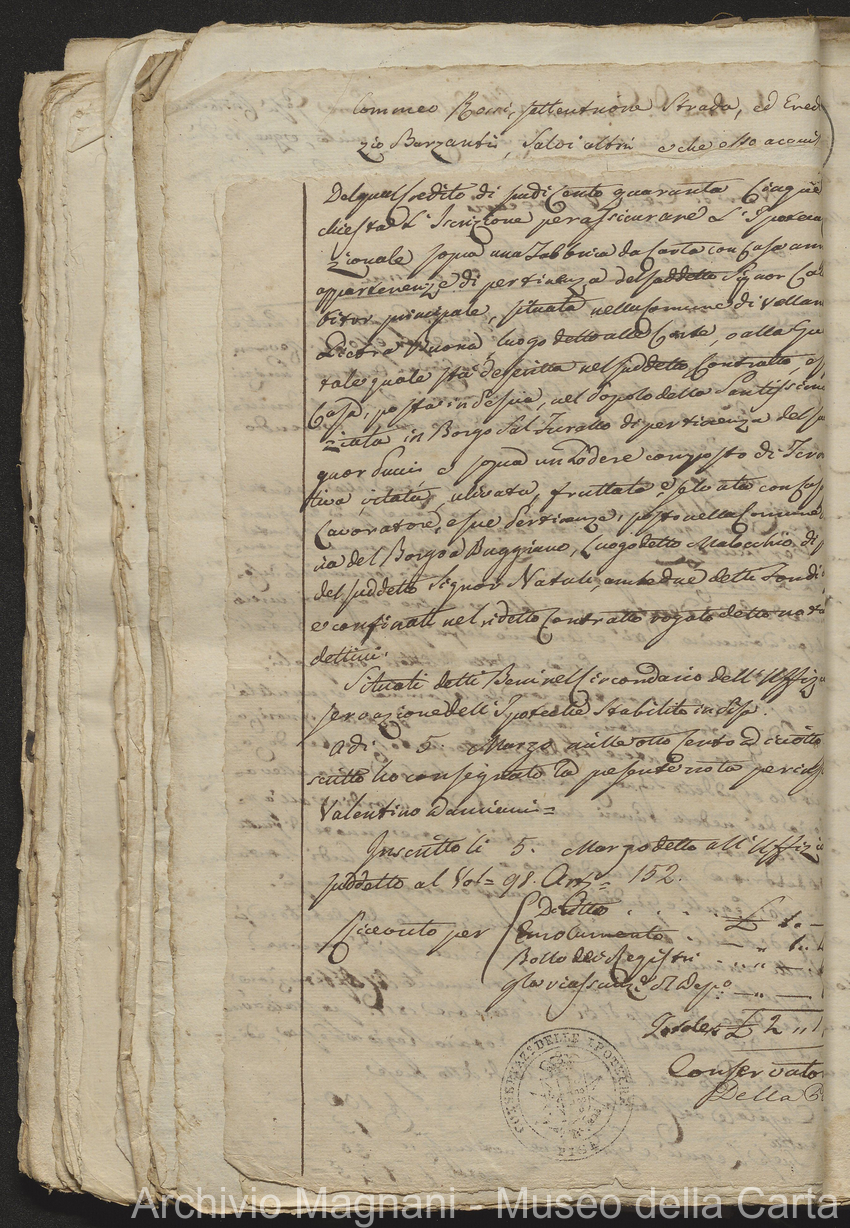 Commeo Rossi, settentrione Strada, ed Ered
zio Barzanti, Salvi altri e che esso acqui
Del qual credito di scudi Cento quaranta Cinque
chiesta L'Iscrizione per assicurare L'Ipoteca
zionale sopra una Fabbrica da Carta con Casa ann
appartenenze di pertinenza del suddetto Signor Ca
bitor principale, situata nella Comune di Vellan
Pietra Buona, luogo detto alle Carte, o alla
tale quale sta descritta nel suddetto Contratto,
Casa, posta in Pescia, nel Popolo della Santissima
ziata in Borgo di pertinenza del
gnor e sopra un Podere composto di Terra
tiva, vitata, ulivata, fruttata, e selvata con Cas
Lavoratore, e sue Pertinenze, posto nella Comune
ria del Borgo a Buggiano, Luogo detto Malocchio, di
del suddetto Signor Natali, ambedue detti Fondi
e confinati nel ridetto Contratto rogato detto nota
dettini.
Situati detti Beni nel Circondario dell'Uffizi
servazione dell'Ipoteche Stabilito in Pisa.
A dì 5. Marzo mille otto cento diciotto
scritto ho consegnato la presente nota per
Valentino Damiani =
Inscritto li 5. Marzo detto all'Uffizi
suddetto al Vol= 98. Art= 152.
Ricevuto per
Dritto . . . £ 1. -
Emolumento - - " 1.
Bollo dei Registri - " -
- " -
Totale £ 2 "
Conservato
Della
CONSERVAZ. DELLE IPOTECHE
PISA
Archivio Magnani - Museo della Carta